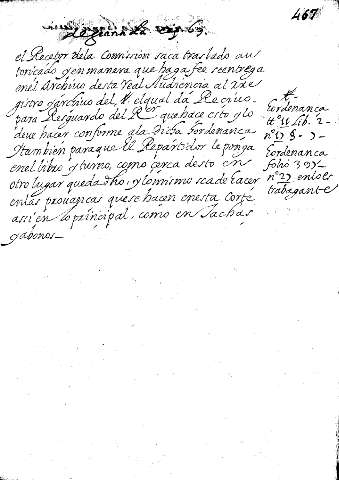 467
el Recetor de la Comission saca traslado au
toricado y en manera que haga fee se entrega
en el Archivo desta Real Audiencia al Rxe
gistro y archivo del el qual da Recivo
para Resguardo del Ror que hace esto y lo
deve hacer conforme a la dicha hordenanca
y tambien para que el Repartidor le ponga
en el libro y turno, como cerca desto en
otro lugar queda dho, y lo mismo se a de hacer
en las provancas que se hacen en esta Corte
assi en lo principal, como en tachas
y abonos
hordenanca
tt.º 11 lib. 2
nº 17 §.
hordenanca
folio 397
nº 27 en los e
trabagante